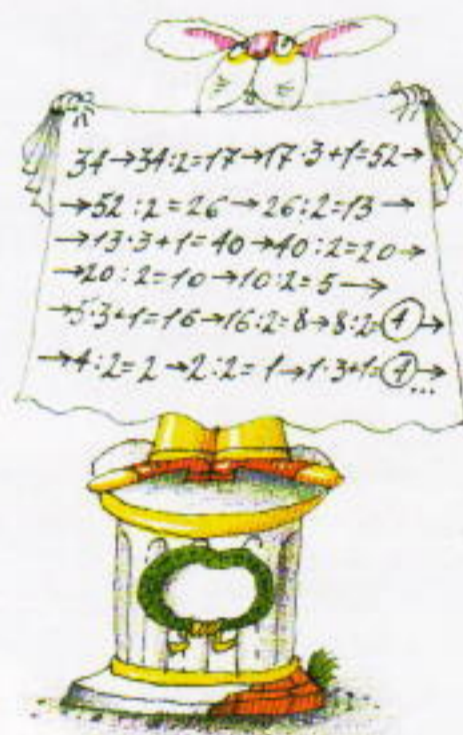 34→34:2=17→17·3+1=52→
→52:2=26→26:2=13→
→13·3+1=40→40:2=20→
→20:2=10→10:2=5→
→5·3+1=16→16:2=8→8:2=4→
→4:2=2→2:2=1→1·3+1=4→...